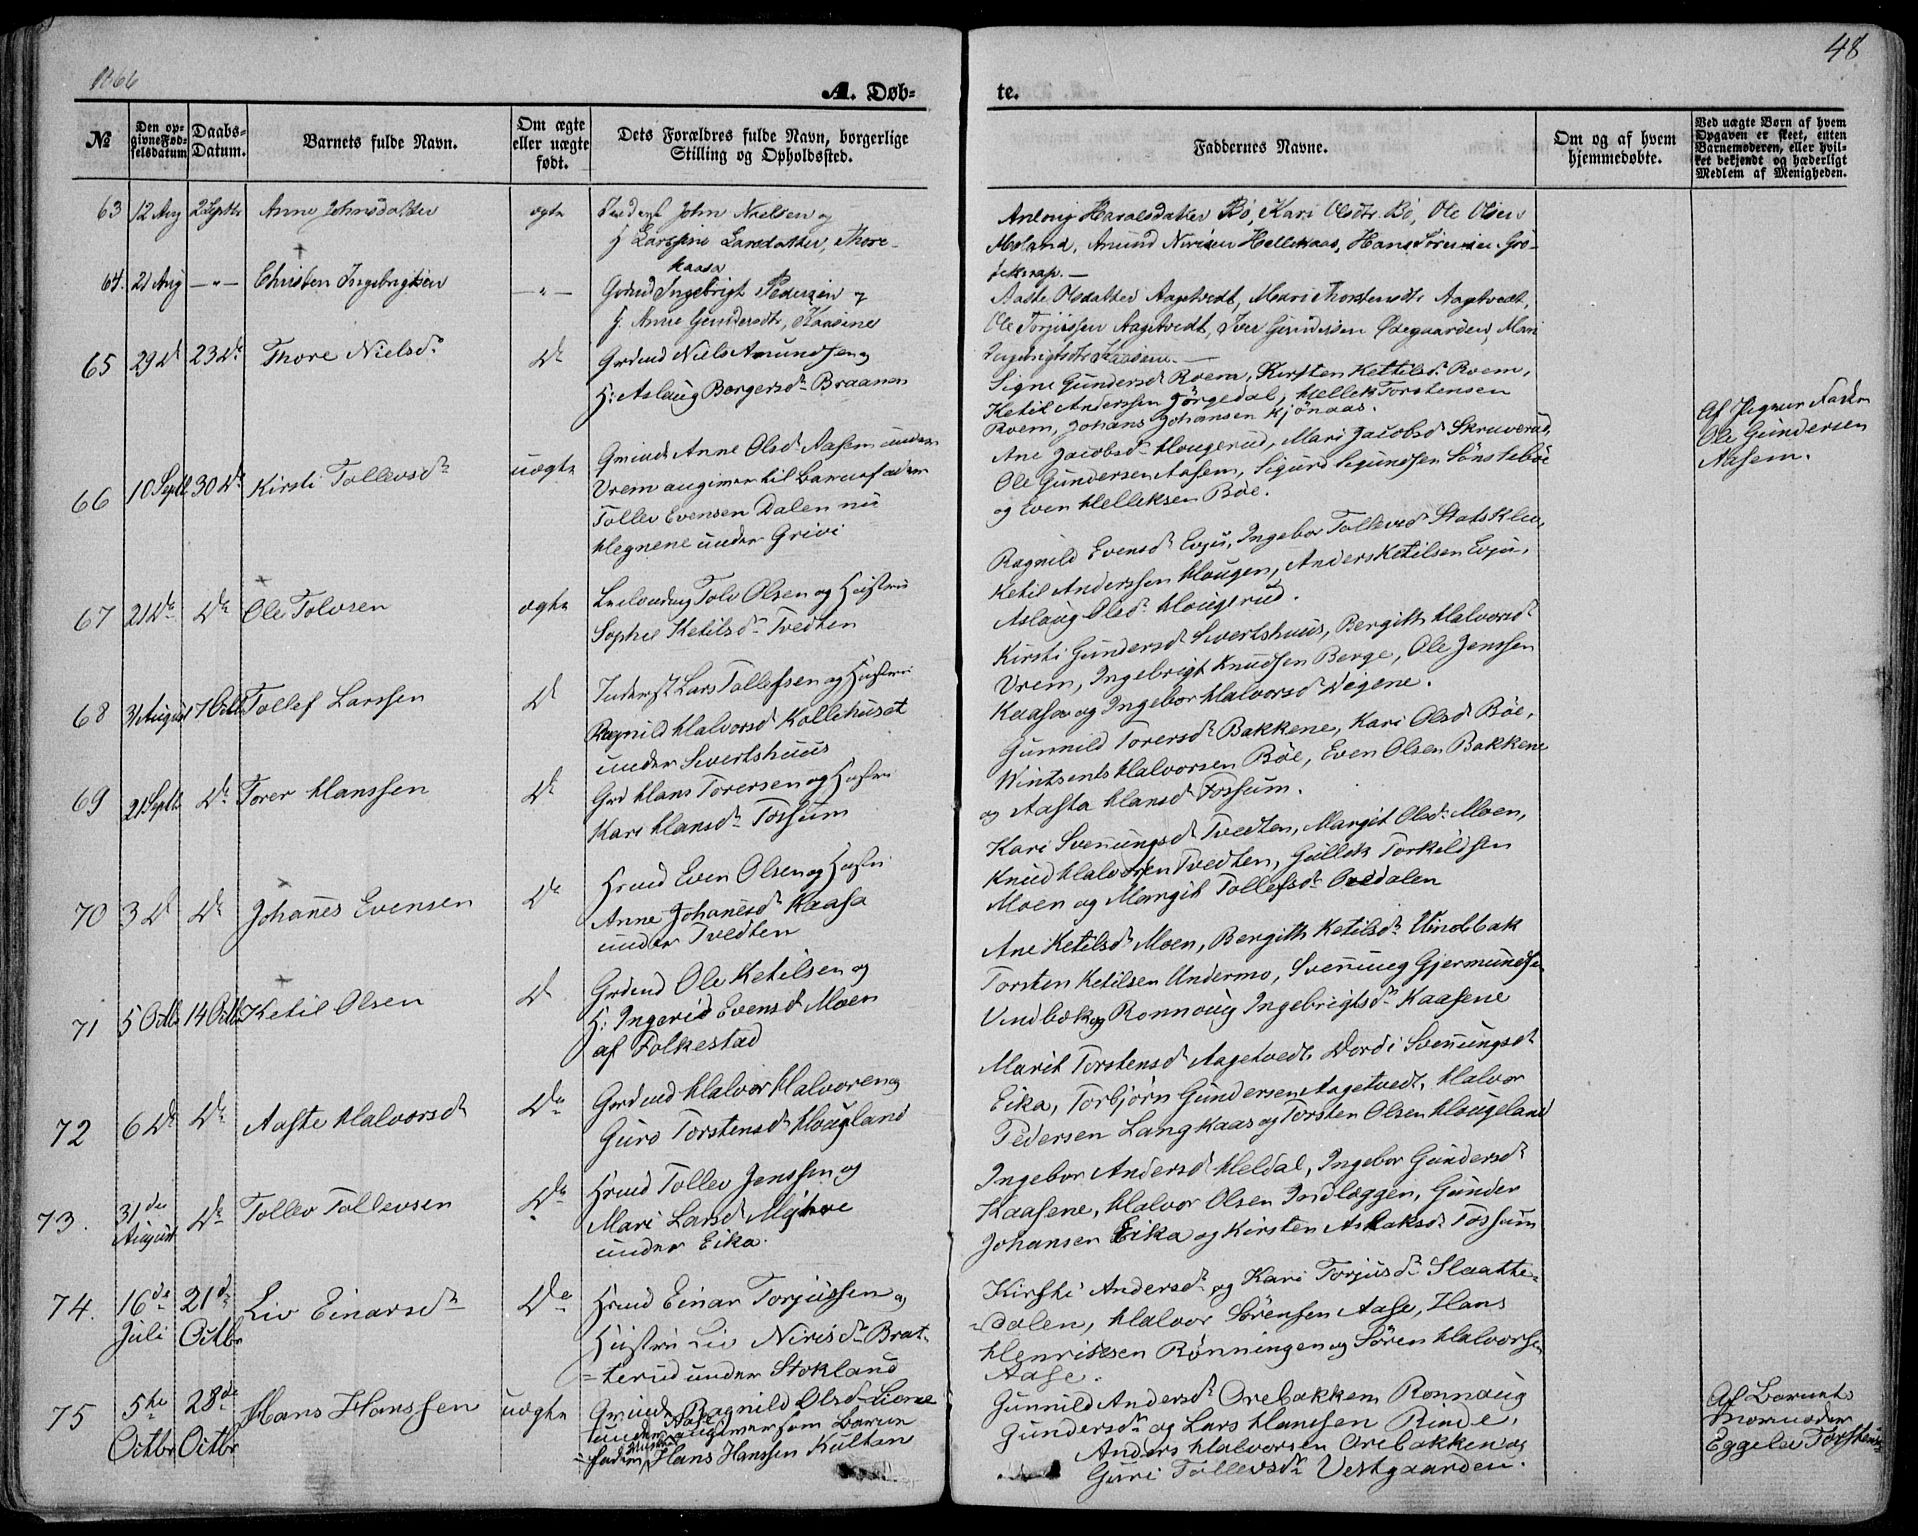 1866
48
A. Døb-
te.
№
Den op-
givne Fød-
selsdatum
Daabs-
Datum.
Barnets fulde Navn.
Om ægte
eller uægte
født.
Dets Forældres fulde Navn, borgerlige
Stilling og Opholdssted.
Faddernes Navne.
Om og af hvem
hjemmedøbte.
Ved uægte Børn af hvem
Opgaven er skeet, enten
Barnemoderen, eller hvil-
ket bekjendt og hæderligt
Medlem af Menigheden.
63 12 Aug 2 Septbr Anne Johnsdatter ægte Inderst John Nielsen og
H Larssine Larsdatter, Thore-
kaasa
Anlong Haralsdatter Bø, Kari Olsdtr Bø, Ole Olsen
Moland, Amund Nirisen Hellekaas, Hans Sørensen Grø-
64. 21 Aug — " — Christen Ingebrigtsen — " — Grdmd Ingebrigt Pedersen og
H. Anne Gundersdtr, Kaasene
Aaste Olsdatter Aagetvedt, Mari Thorstensdtr Aagetvedt,
Ole Torjussen Aagetvedt, Iver Gundersen Ødegaarden, Mari
Ingebrigtsdtr Kaasene. —
65 29 Do 23 Do Thore Nielsdr Do Grdmd Niels Amundsen og
H: Aslaug Borgersdr Braanen
Signe Gundersdr Roem, Kirsten Kettilsdr Roem,
Ketil Anderssen Jørgedal, Hellek Torstensen
Roem, Johans Johansen Kjønaas.
66 10 Septb 30 Do Kirsti Tollevsdr uægte Gmiude Anne Olsdr Aasem under
Urem angiver til Barnefader
Tollev Evensen Dalen nu
Hegnene under Grivi
Ane Jacobsdr Hougerud, Mari Jacobsdr Skruverud,
Ole Gundersen Aasem, Sigurd Segundsen Sønstebøe
og Even Helleksen Bøe.
Af Pigens Fader
Ole Gundersen
Aasem.
67 21 Do Do Ole Tolvsen ægte Tolv Olsen og Hustru
Sophie Ketilsdr Tvedten
Ragnild Evensdr Evju, Ingebor Tollevsdr Statsklev,
Ketil Anderssen Hougen, Anders Ketilsen Evju,
Aslaug Olsdr Hougerud.
68 31 August 7 Octb Tollef Larssen Do Inderst Lars Tollefsen og Hustru
Ragnild Halvorsdr Kollehuset
under Sivertshuus
Kirsti Gundersdr Sivertshuus, Bergith Halvorsdr
Urem, Ingebrigt Knudsen Berge, Ole Jenssen
Kaasa og Ingebor Halvorsdr Vegene.
69 21 Septb Do Torer Hanssen Do Grd Hans Torersen og Hustru
Kari Hansdr Fossum
Gunnild Torersdr Bakkene, Kari Olsdr Bøe,
Wintsents Halvorsen Bøe, Even Olsen Bakkene
og Aasta Hansdr Fossum.
70 3 Do Do Johanes Evensen Do Hmd Even Olsen og Hustru
Anne Johanesdr Kaasa
under Tvedten
Kari Svenungsdr Tvedten, Margit Olsdr Moen,
Knud Halvorsen Tvedten, Gullek Torkildsen
Moen og Margit Tollefsdr Ovedalen
71 5 Octb 14 Octb Ketil Olsen Do Grdmd Ole Ketilsen og
H: Ingerid Evensdr Moen
af Folkestad
Ane Ketilsdr Moen, Bergith Ketilsdr Vindbak
Torsten Ketilsen Undermo, Svenung Gjermundsen
Vindbæk og Ronnoug Ingebrigtsdr Kaasene
72 6 Do Do Aaste Halvorsdr Do Gardmd Halvor Halvorsen og
Guro Torstensdr Hougland
Marit Torstensdr Aagetvedt, Dordi Svenungsdr
Eika, Torbjørn Gundersen Aagetvedt, Halvor
Pedersen Langkaas og Torsten Olsen Hougeland
73. 31 de August Do Tollev Tollevsen Do Hmd Tollev Jenssen og
Mari Larsdr Myhre
under Eika.
Ingebor Andersdr Heldal, Ingebor Gundersdr
Kaasene, Halvor Olsen Indlæggen, Gunder
Johansen Eika og Kirsten Aslaksdr Fossum
74. 16de Juli 21de Octbr Liv Einarsdr Do Hmd Einar Torjussen og
Hustru Liv Nirisdr Brat-
=terud under Stokland
Kirsti Andersdr og Kari Torjusdr Slaatte-
=dalen, Halvor Sørensen Aase, Hans
Henriksen Rønningen og Søren Halvorsen
Aase.
75 5te Octbr 28de Octbr Hans Hanssen uægte Gmiude Ragnild Olsdr Liene
under Aase angiver som Barne
=fader Hans Hanssen Kultan
Gunnild Andersdr Orebakken, Ronnaug
Gundersdr og Lars Hanssen Rinde,
Anders Halvorsen Orebakken og
Guri Tollevsdr Vestgaarden.
Af Barnets
Mormoder
Eggelev Torstensdr